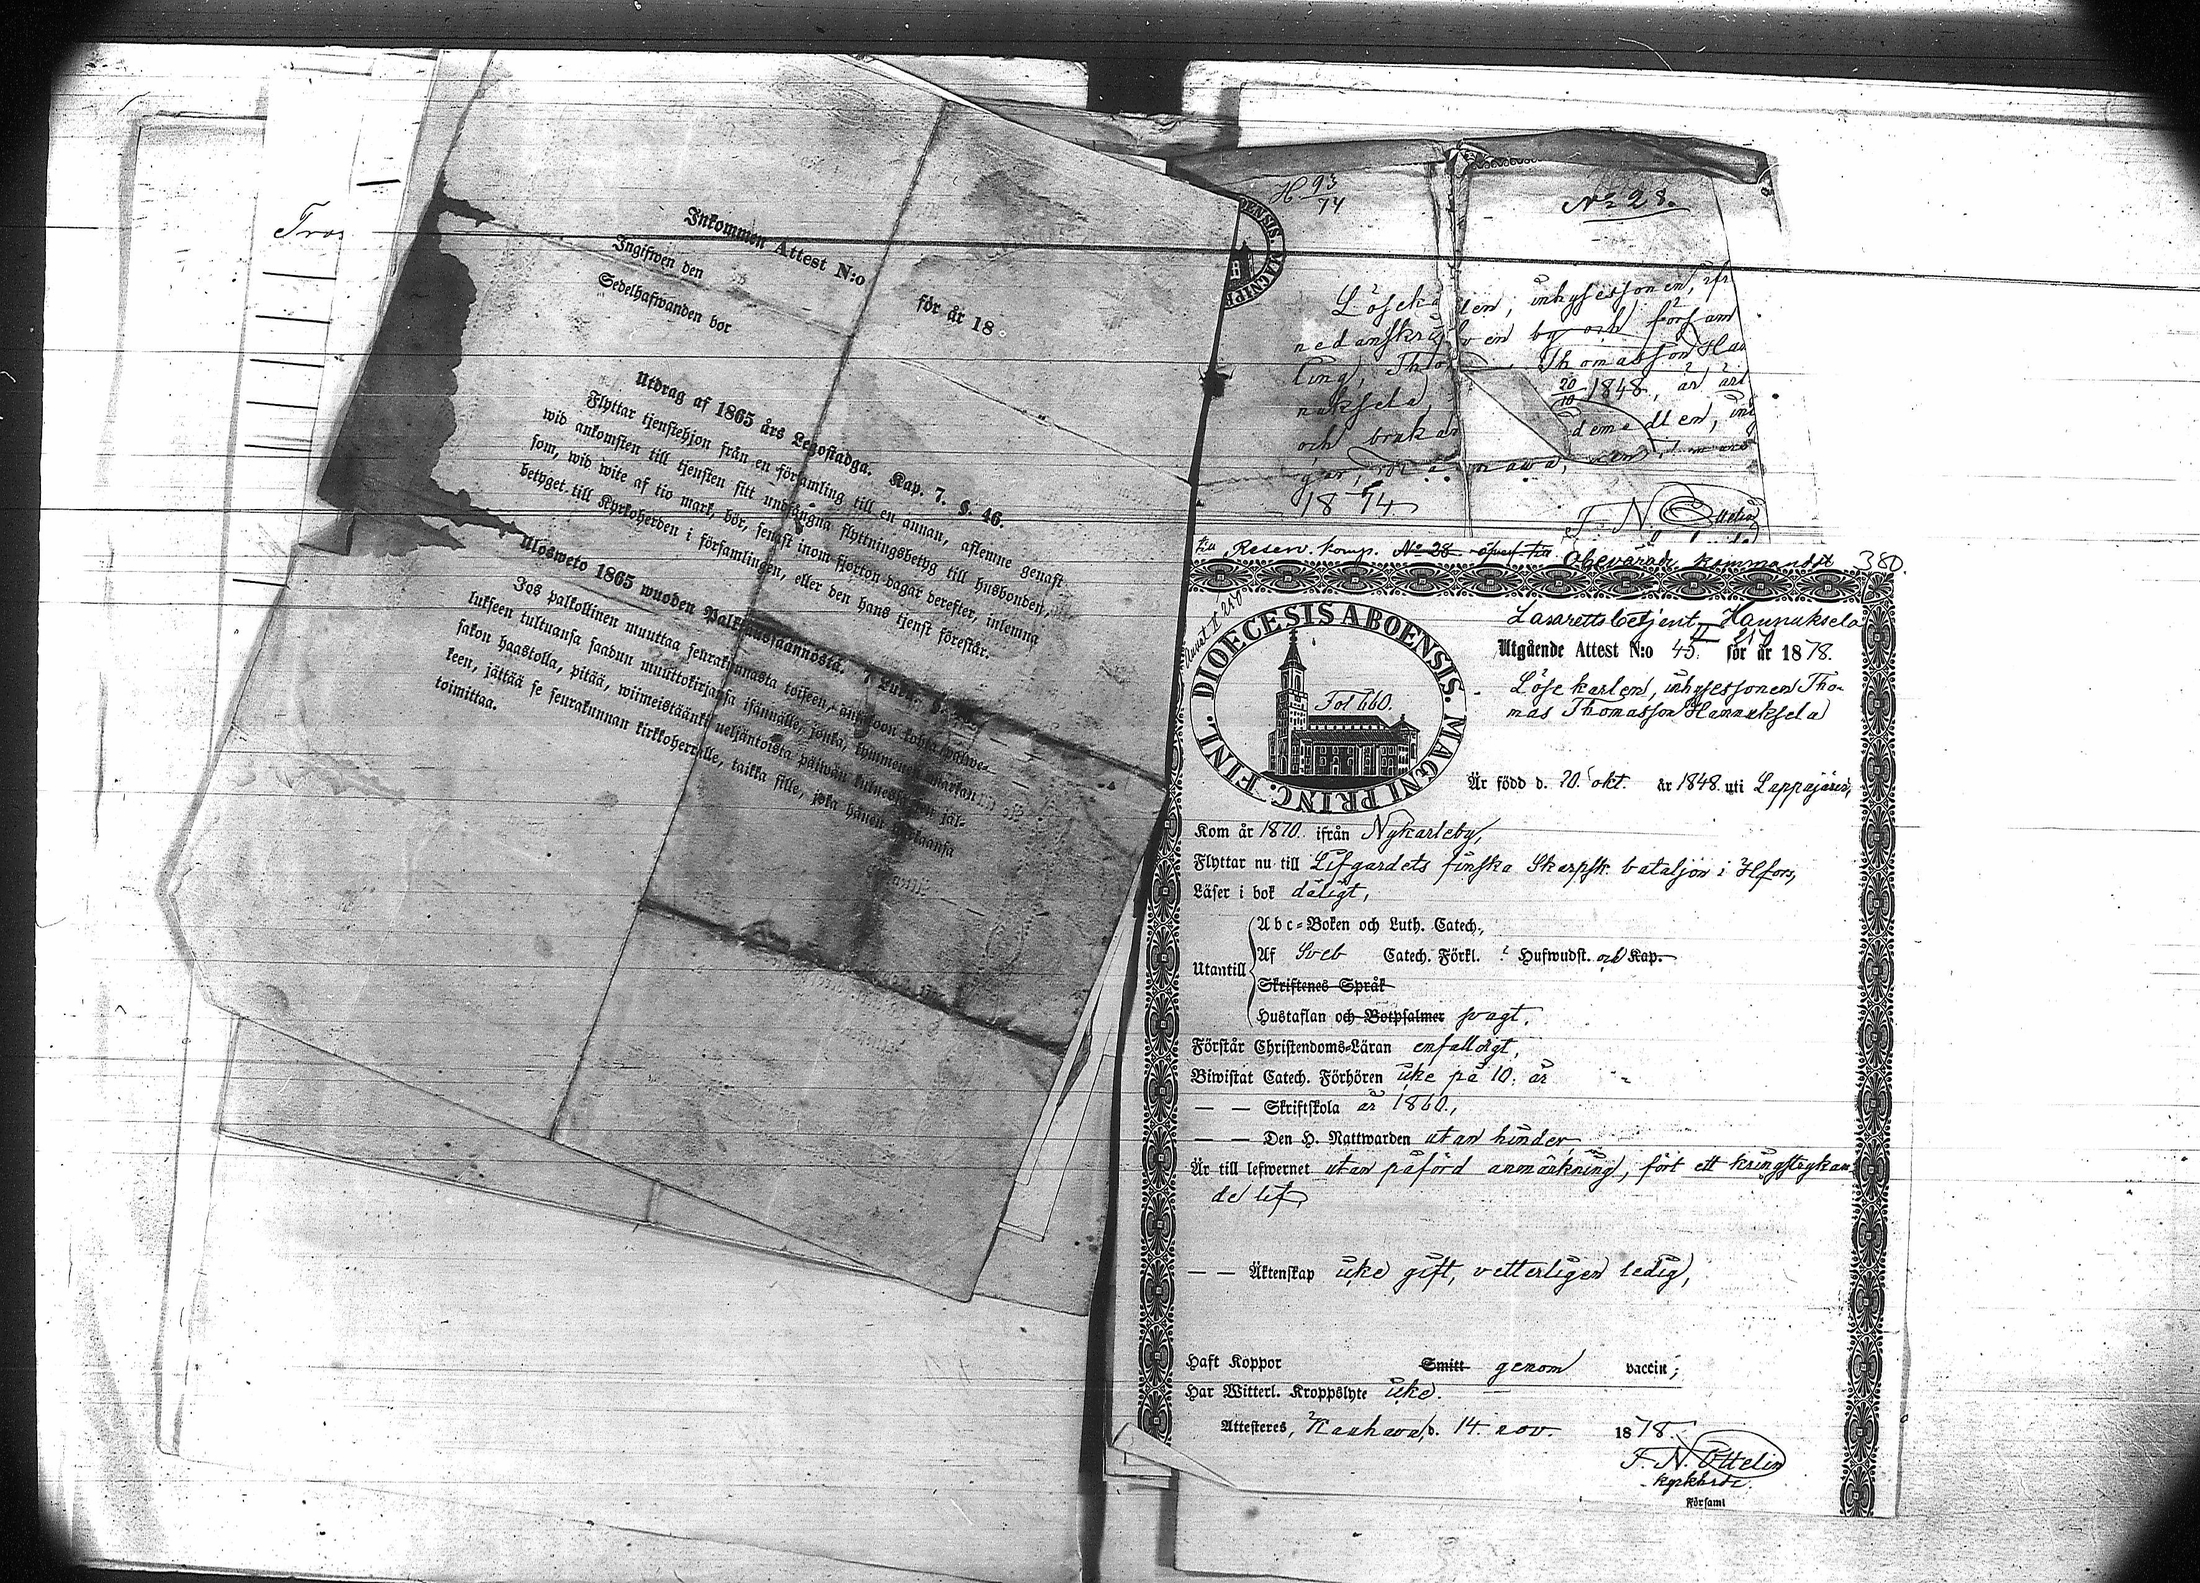 Tros
Inkommen Attest N:o för år 18
Ingifwen den
Sedelhafwanden bor
Utdrag af 1865 års Legostadga. Kap. 7. §. 46.
Flyttar tjenstehjon från en församling till en annan, aflemne genast
wid ankomsten till tjensten sitt undfångna flyttningsbetyg till husbonden,
som, wid wite af tio mark, bör, senast inom fjorton dagar derefter, inlemna
betyget till Kyrkoherden i församlingen, eller den hans tjenst förestår.
Ulosweto 1865 wuoden Palkollissäännöstä. 7 Luku.
Jos palkollinen muuttaa seurakunnasta toiseen, antakoon kohta palwe-
lukseen tultuansa saadun muuttokirjansa isännälle, jonka, kymmenen markan
sakon haastolla, pitää, wiimeistäänki neljäntoista päiwän kuluessa sen jäl-
keen, jättää se seurakunnan kirkkoherralle, taikka sille, joka hänen wirkaansa
toimittaa.
H 93/74
No 28.
Löseka len, inhysessonen, ifr
nedanskrif en by och försam
ling, Tho Thomasson Han
nuksela, 20/10 1848, är ärl
och brukar demedlen, in
1874
F. N. Ottelin
till Reserv. komp. No 28 öfverf. till Obevärde kommando 380.
Lasarettsbetjent Hannuksela
Utgående Attest N:o 45. för år 1878.
DIOECESIS ABOENSIS. MAGNI PRINC. FINL.
Fol 660.
Löse karlen, inhysessonen Tho-
mas Thomasson Hannuksela
Är född d. 20. okt. år 1848. uti Lappajärvi,
Kom år 1870. ifrån Nykarleby,
Flyttar nu till Lifgardets finska Skarpsk. bataljon i Hfors,
Läser i bok dåligt,
Abc-Boken och Luth. Catech.,
Utantill Af Sveb Catech. Förkl. 2 Hufwudst. och Kap.
Skriftenes Språk
Hustaflan och Botpsalmer svagt.
Förstår Christendoms-Läran enfalldigt,
Biwistat Catech. Förhören icke på 10. år
— — Skriftskola år 1860.,
— — Den H. Nattwarden utan hinder
Är till lefwernet utan påförd anmärkning, fört ett kringstrykan-
de lif,
— — Äktenskap icke gift, vetterligen ledig,
Haft Koppor Smitt genom vaccin;
Har Witterl. Kroppslyte icke.
Attesteres, Kauhava, d. 14. nov. 1878.
F. N. Ottelin
kyrkoherde.
Församl